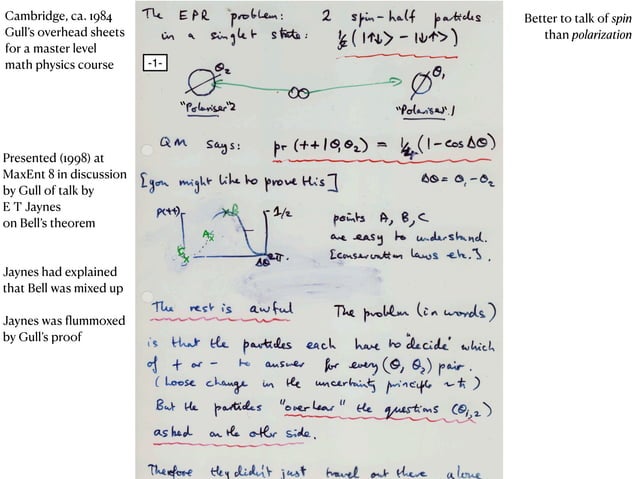 Cambridge, ca. 1984
Gull's overhead sheets
for a master level
math physics course
Presented (1998) at
MaxEnt 8 in discussion
by Gull of talk by
E T Jaynes
on Bell's theorem
Jaynes had explained
that Bell was mixed up
Jaynes was flummoxed
by Gull's proof
Better to talk of spin
than polarization
The EPR problem: 2 spin-half particles
in a singlet state: 1/√2 (|↑↓> − |↓↑>)
-1-
θ2
θ1
"Polariser" 2
"Polariser" 1
QM says: pr(++|θ1θ2) = 1/4 (1 − cos Δθ)
[you might like to prove this]
Δθ = θ1 − θ2
P(++)
B
1/2
A
Δθ
2π
points A, B, C
are easy to understand.
[conservation laws etc.].
The rest is awful
The problem (in words)
is that the particles each have to "decide" which
of + or − to answer for every (θ1 θ2) pair.
(Loose change in the uncertainty principle ~ℏ)
But the particles "overhear" the questions (θ1,2)
asked on the other side.
Therefore they didn't just travel out there alone